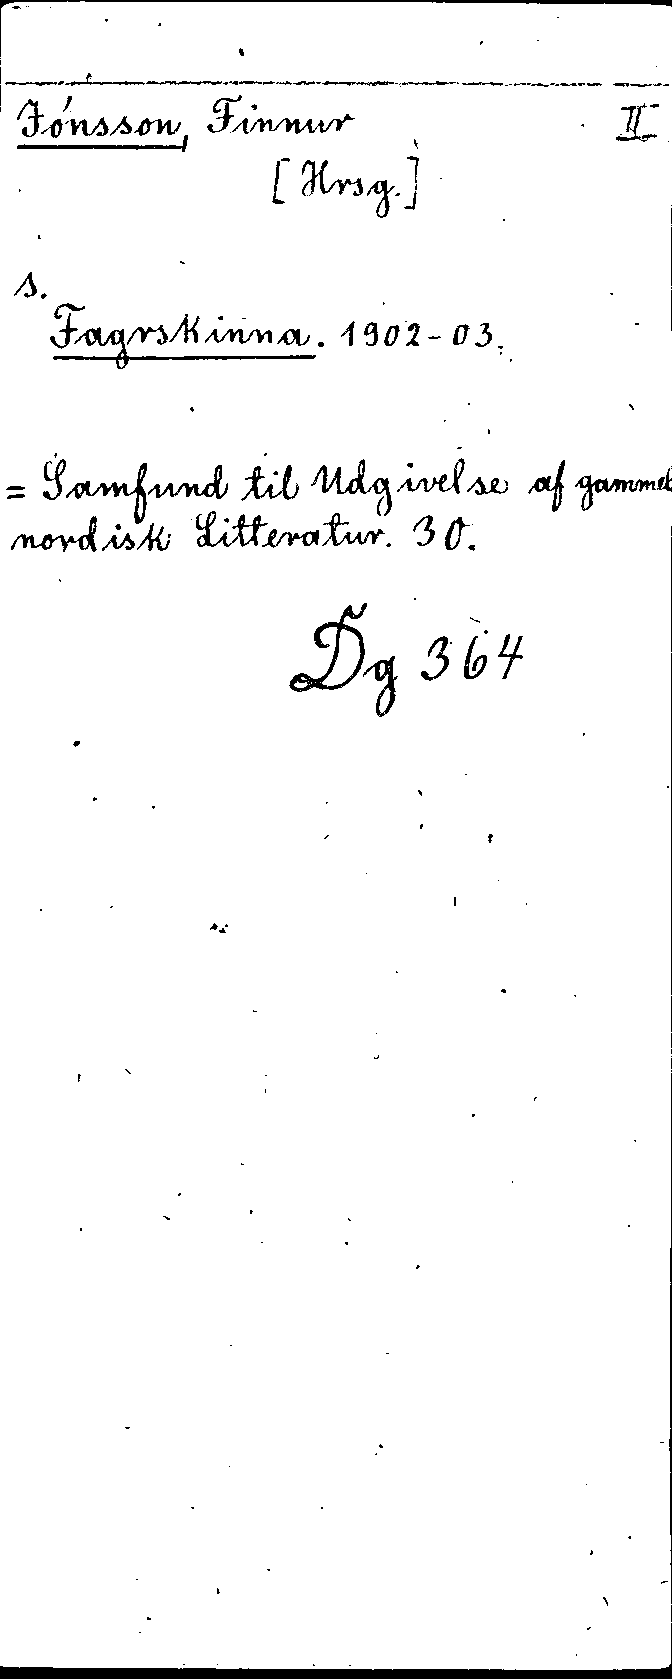 Jónsson, Finnur II
[Hrsg.]
s.
Fagrskinna. 1902-03.
= Samfund til Udgivelse af gammel
nordisk Litteratur. 30.
Dg 364